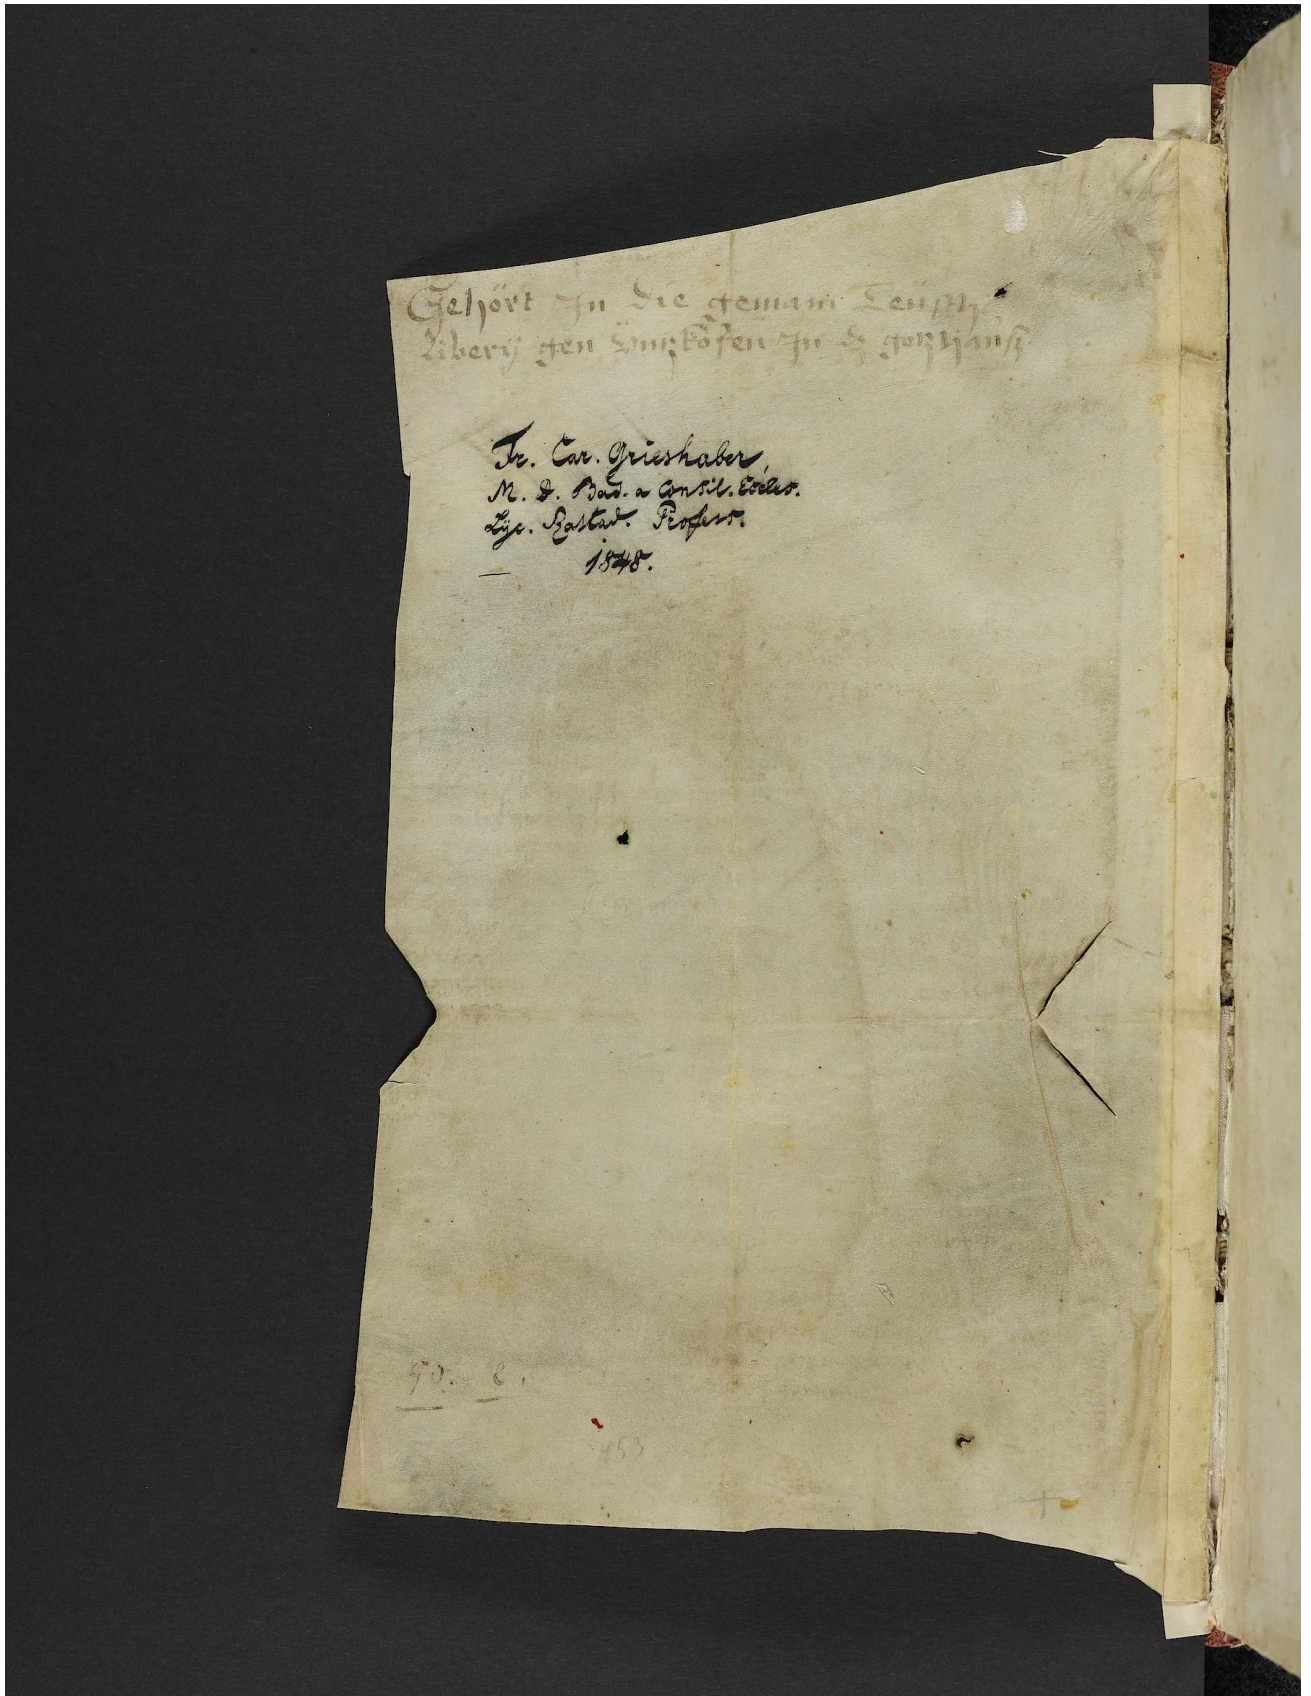 Gehört In die gemain Teütsch
Liberÿ gen Üntzkofen In dz gotzhauß
Fr. Car. Grieshaber,
M. D. Bad. a Consil. Eccles.
Lyc. Rastad. Profess.
1848.
50. e.
453